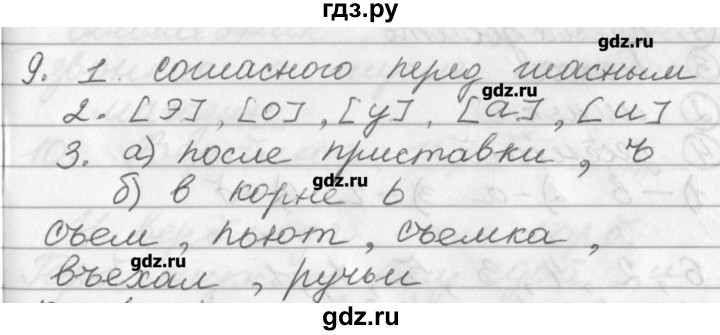 гдз.ру
gdz.ru
9. 1. согласного перед гласным
gdz.ru
2. [э], [о], [у], [а], [и]
3. а) после приставки, ъ
gdz.ru
б) в корне ь
съем, пьют, съемка,
gdz.ru
въехал, ручьи
gdz.ru